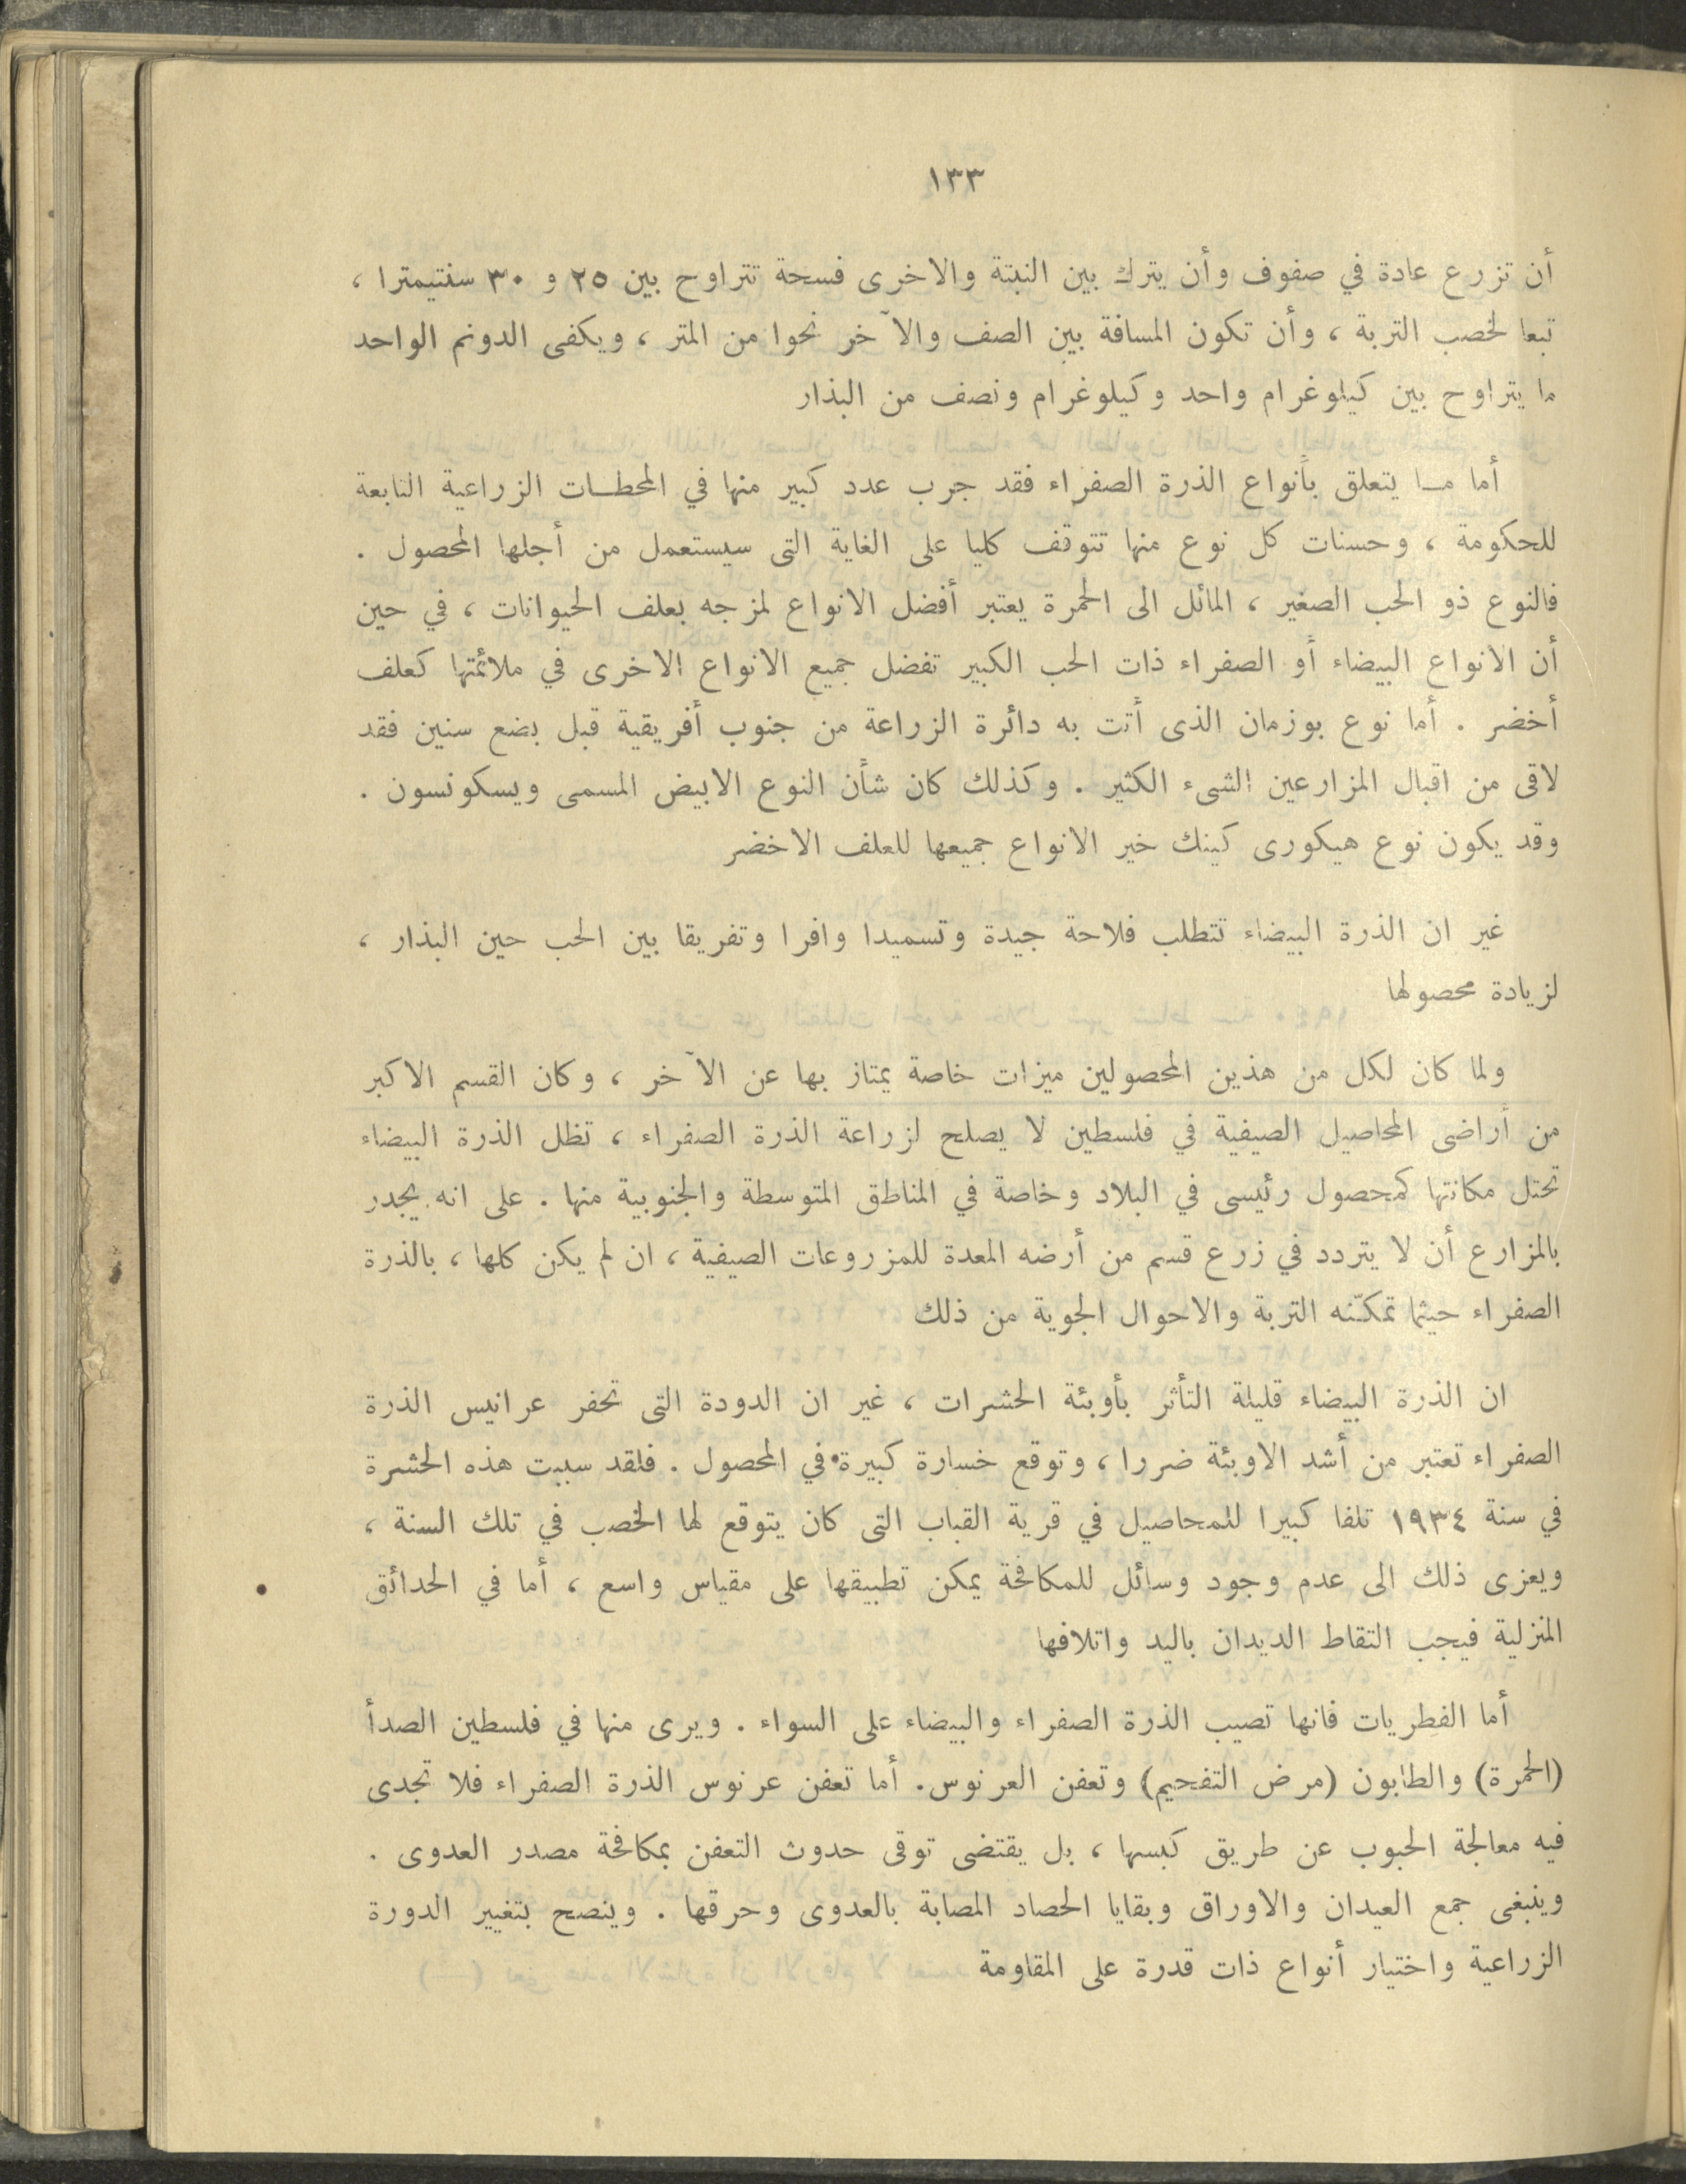 ١٣٣
أن تزرع عادة في صفوف وأن يترك بين النبتة والاخرى فسحة تتراوح بين ٢٥ و ٣٠ سنتيمترا ،
تبعا لخصب التربة ، وأن تكون المسافة بين الصف والآخر نحوا من المتر ، ويكفى الدونم الواحد
ما يتراوح بين كيلوغرام واحد وكيلوغرام ونصف من البذار
أما ما يتعلق بأنواع الذرة الصفراء فقد جرب عدد كبير منها في المحطات الزراعية التابعة
للحكومة ، وحسنات كل نوع منها تتوقف كليا على الغاية التى سيستعمل من أجلها المحصول .
فالنوع ذو الحب الصغير ، المائل الى الحمرة يعتبر أفضل الانواع لمزجه بعلف الحيوانات ، في حين
أن الانواع البيضاء أو الصفراء ذات الحب الكبير تفضل جميع الانواع الاخرى في ملائمتها كعلف
أخضر . أما نوع بوزمان الذى أتت به دائرة الزراعة من جنوب أفريقية قبل بضع سنين فقد
لاقى من اقبال المزارعين الشىء الكثير . وكذلك كان شأن النوع الابيض المسمى ويسكونسون .
وقد يكون نوع هيكورى كينك خير الانواع جميعها للعلف الاخضر
غير ان الذرة البيضاء تتطلب فلاحة جيدة وتسميدا وافرا وتفريقا بين الحب حين البذار ،
لزيادة محصولها
ولما كان لكل من هذين المحصولين ميزات خاصة يمتاز بها عن الآخر ، وكان القسم الاكبر
من أراضى المحاصيل الصيفية في فلسطين لا يصلح لزراعة الذرة الصفراء ، تظل الذرة البيضاء
تحتل مكانتها كمحصول رئيسى في البلاد وخاصة في المناطق المتوسطة والجنوبية منها . على انه يجدر
بالمزارع أن لا يتردد في زرع قسم من أرضه المعدة للمزروعات الصيفية ، ان لم يكن كلها ، بالذرة
الصفراء حيثما تمكّنه التربة والاحوال الجوية من ذلك
ان الذرة البيضاء قليلة التأثر بأوبئة الحشرات ، غير ان الدودة التى تحفر عرانيس الذرة
الصفراء تعتبر من أشد الاوبئة ضررا ، وتوقع خسارة كبيرة في المحصول . فلقد سببت هذه الحشرة
في سنة ١٩٣٤ تلفا كبيرا للمحاصيل في قرية القباب التى كان يتوقع لها الخصب في تلك السنة ،
ويعزى ذلك الى عدم وجود وسائل للمكافحة يمكن تطبيقها على مقياس واسع ، أما في الحدائق
المنزلية فيجب التقاط الديدان باليد واتلافها
أما الفطريات فانها تصيب الذرة الصفراء والبيضاء على السواء . ويرى منها في فلسطين الصدأ
(الحمرة) والطابون (مرض التفحيم) وتعفن العرنوس. أما تعفن عرنوس الذرة الصفراء فلا تجدى
فيه معالجة الحبوب عن طريق كبسها ، بل يقتضى توقى حدوث التعفن بمكافحة مصدر العدوى .
وينبغى جمع العيدان والاوراق وبقايا الحصاد المصابة بالعدوى وحرقها . وينصح بتغيير الدورة
الزراعية واختيار أنواع ذات قدرة على المقاومة